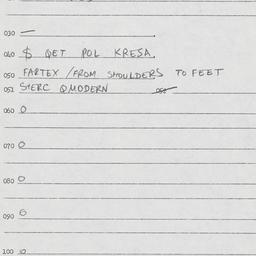 030 —
040 $ QET POL KRESA.
050 FARTEX / FROM SHOULDERS TO FEET
052 STERC @MODERN
060 0
070 0
080 0
090 0
100 0